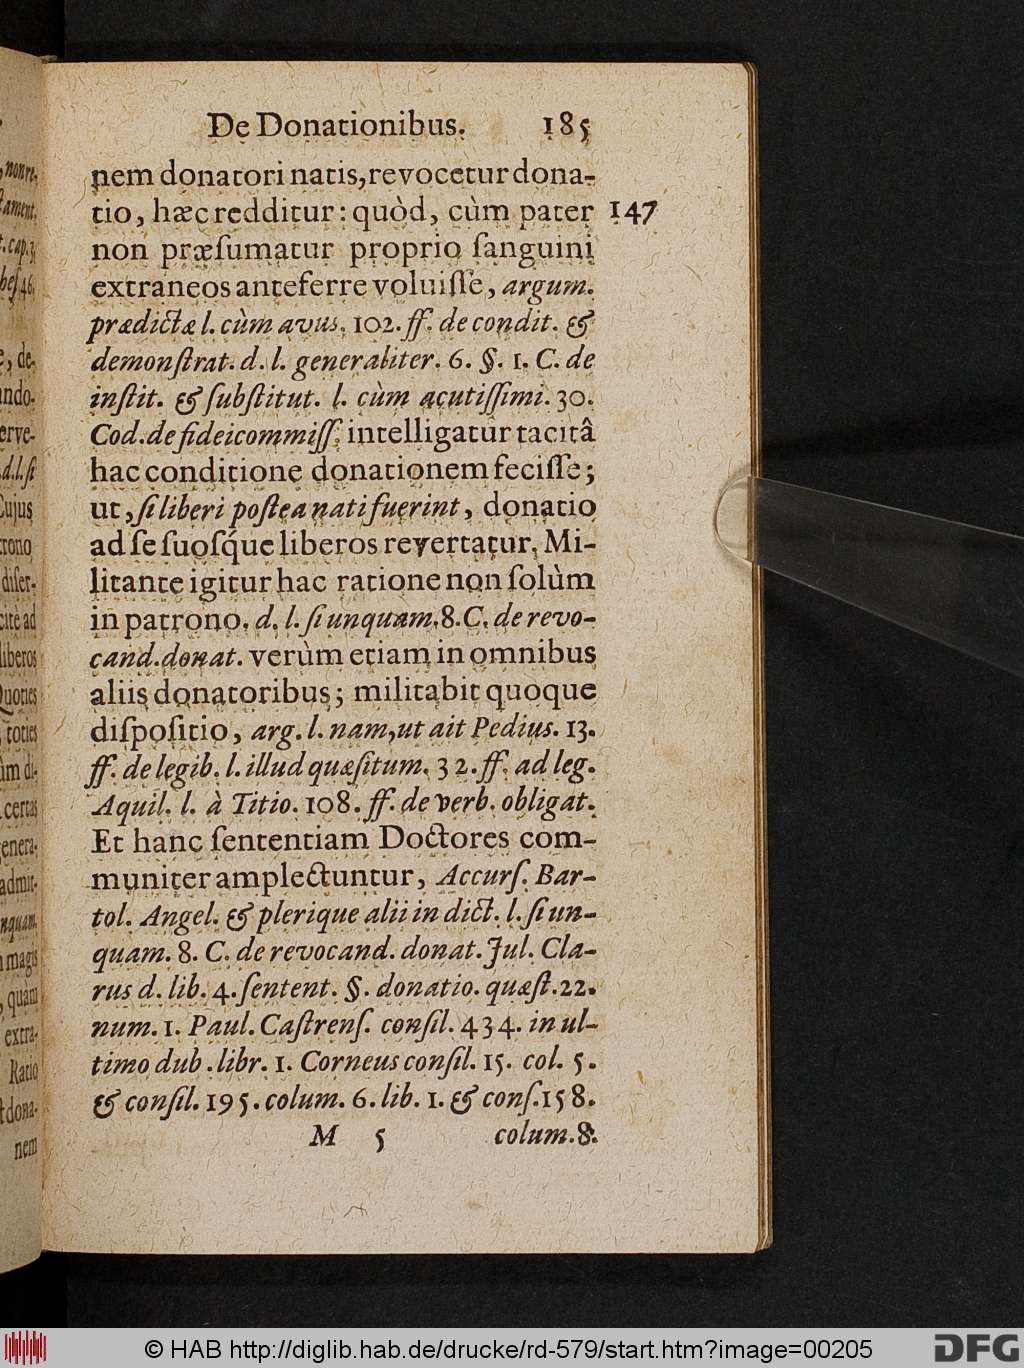 De Donationibus. 185
nem donatori natis, revocetur dona-
tio, hæc redditur: quòd, cùm pater 147
non præſumatur proprio ſanguini
extraneos anteferre voluiſſe, argum.
prædictæ l. cùm avus. 102. ff. de condit. &
demonſtrat. d. l. generaliter. 6. §. 1. C. de
inſtit. & ſubſtitut. l. cùm acutiſſimi. 30.
Cod. de fideicommiſſ. intelligatur tacitâ
hac conditione donationem feciſſe;
ut, ſi liberi poſtea nati fuerint, donatio
ad ſe ſuoſq́ue liberos revertatur. Mi-
litante igitur hac ratione non ſolùm
in patrono. d. l. ſi unquam. 8. C. de revo-
cand. donat. verùm etiam in omnibus
aliis donatoribus; militabit quoque
diſpoſitio, arg. l. nam, ut ait Pedius. 13.
ff. de legib. l. illud quæſitum. 32. ff. ad leg.
Aquil. l. à Titio. 108. ff. de verb. obligat.
Et hanc ſententiam Doctores com-
muniter amplectuntur, Accurſ. Bar-
tol. Angel. & plerique alii in dict. l. ſi un-
quam. 8. C. de revocand. donat. Jul. Cla-
rus d. lib. 4. ſentent. §. donatio. quæſt. 22.
num. 1. Paul. Caſtrenſ. conſil. 434. in ul-
timo dub. libr. 1. Corneus conſil. 15. col. 5.
& conſil. 195. colum. 6. lib. 1. & conſ. 158.
M 5 colum. 8.
, non re-
ſtament.
t. cap. 3,
beſ. 46.
e, de-
ando-
erve-
d. l. ſi
Cujus
trono
diſer-
citè ad
liberos
Quoties
, toties
um di-
certas
genera-
admit-
nquam.
n magis
, quàm
extra-
Ratio
t dona-
nem
© HAB http://diglib.hab.de/drucke/rd-579/start.htm?image=00205
DFG